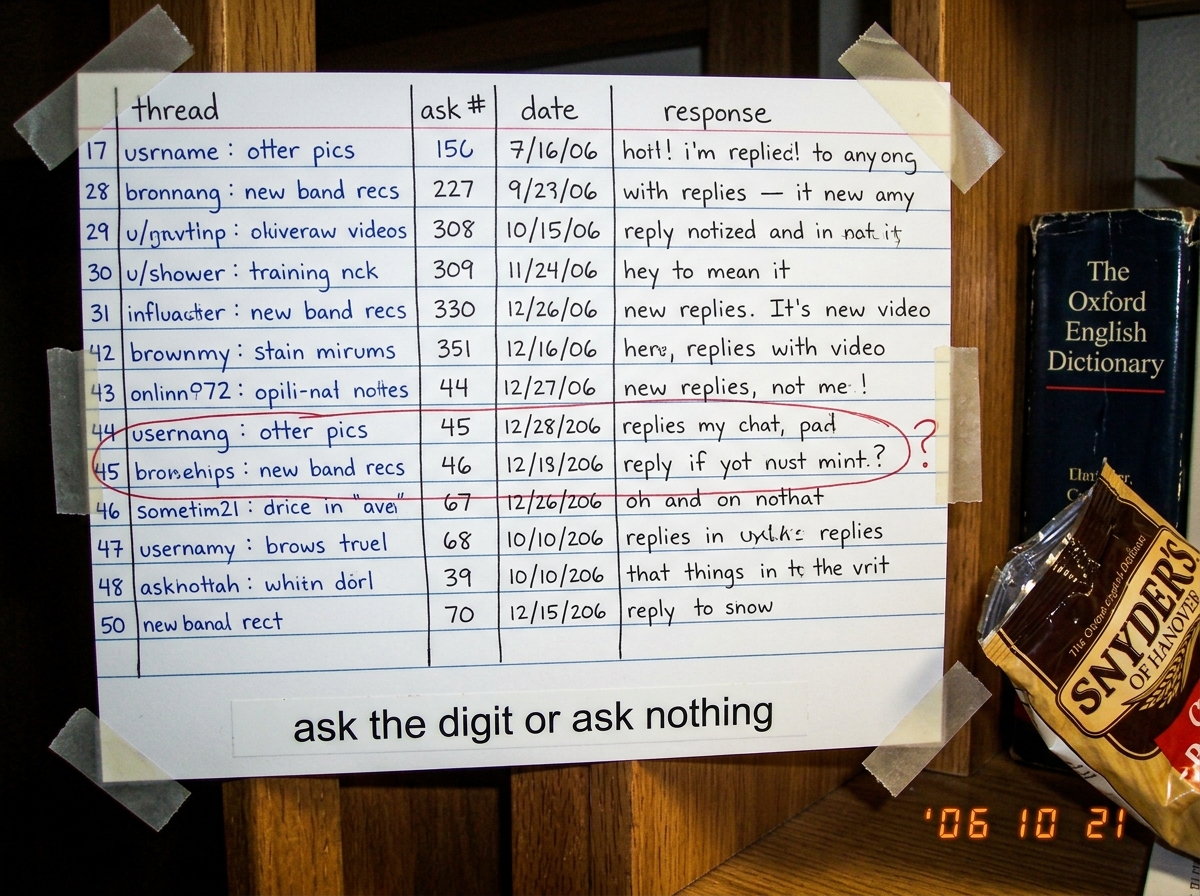 thread ask # date response
17 usrname : otter pics 156 7/16/06 hott! i'm replied! to anyong
28 bronnang : new band recs 227 9/23/06 with replies — it new amy
29 308 10/15/06 reply notized and in
30 u/shower : training nck 309 11/24/06 hey to mean it
31 new band recs 330 12/26/06 new replies. It's new video
42 brownmy : stain mirums 351 12/16/06 here, replies with video
43 onlinn972 : opili-nat nottes 44 12/27/06 new replies, not me !
44 usernang : otter pics 45 12/28/206 replies my chat, pad
?
45 new band recs 46 12/18/206 reply if yot nust mint.?
46 sometim21 : drice in 67 12/26/206 oh and on nothat
47 usernamy : brows truel 68 10/10/206 replies in replies
48 asknottah : whitn dorl 39 10/10/206 that things in the vrit
50 new banal rect 70 12/15/206 reply to snow
ask the digit or ask nothing
The
Oxford
English
Dictionary
SNYDER'S
OF HANOVER
'06 10 21